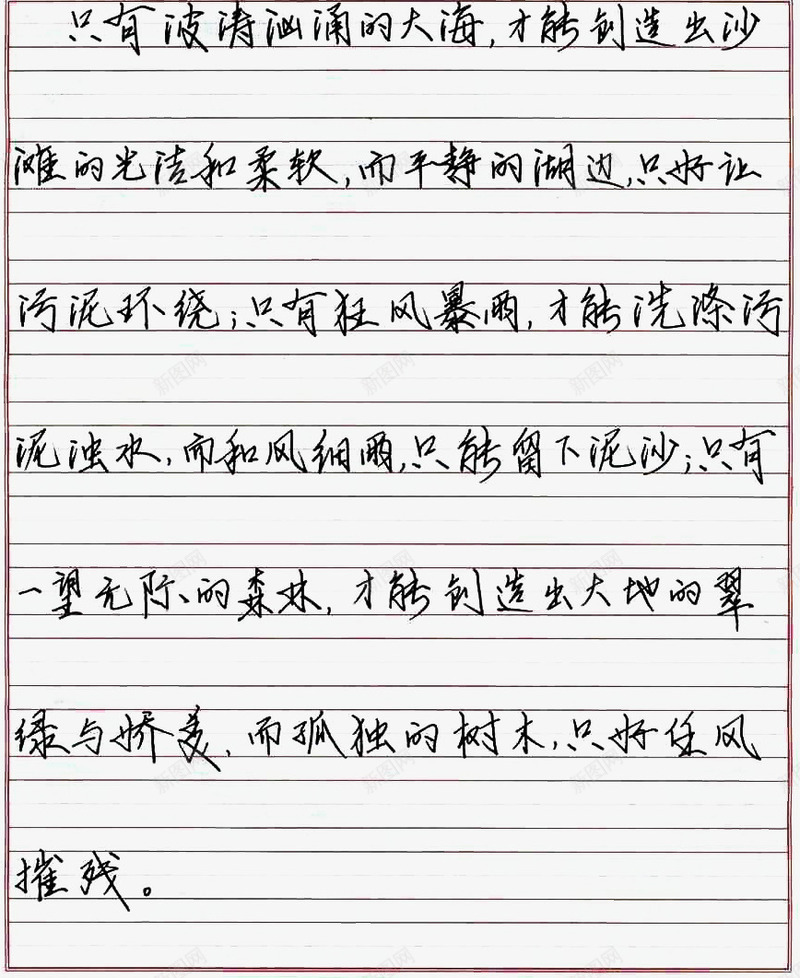 只有波涛汹涌的大海,才能创造出沙
滩的光洁和柔软,而平静的湖边,只好让
污泥环绕;只有狂风暴雨,才能洗涤污
泥浊水,而和风细雨,只能留下泥沙;只有
一望无际的森林,才能创造出大地的翠
绿与娇美,而孤独的树木,只好任风
摧残。